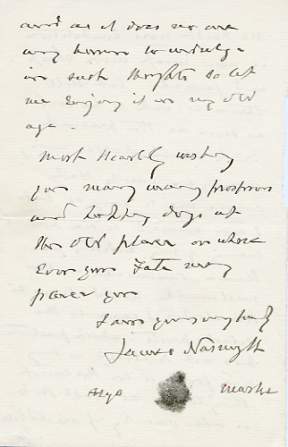 and as it does no one
any harm to indulge
in such thoughts so let
me Enjoy it in my old
age.
Most Heartily wishing
you many many prosperous
and Healthy days at
the old place or where
Ever your Fate may
place you
I am yours very truly
James Nasmyth